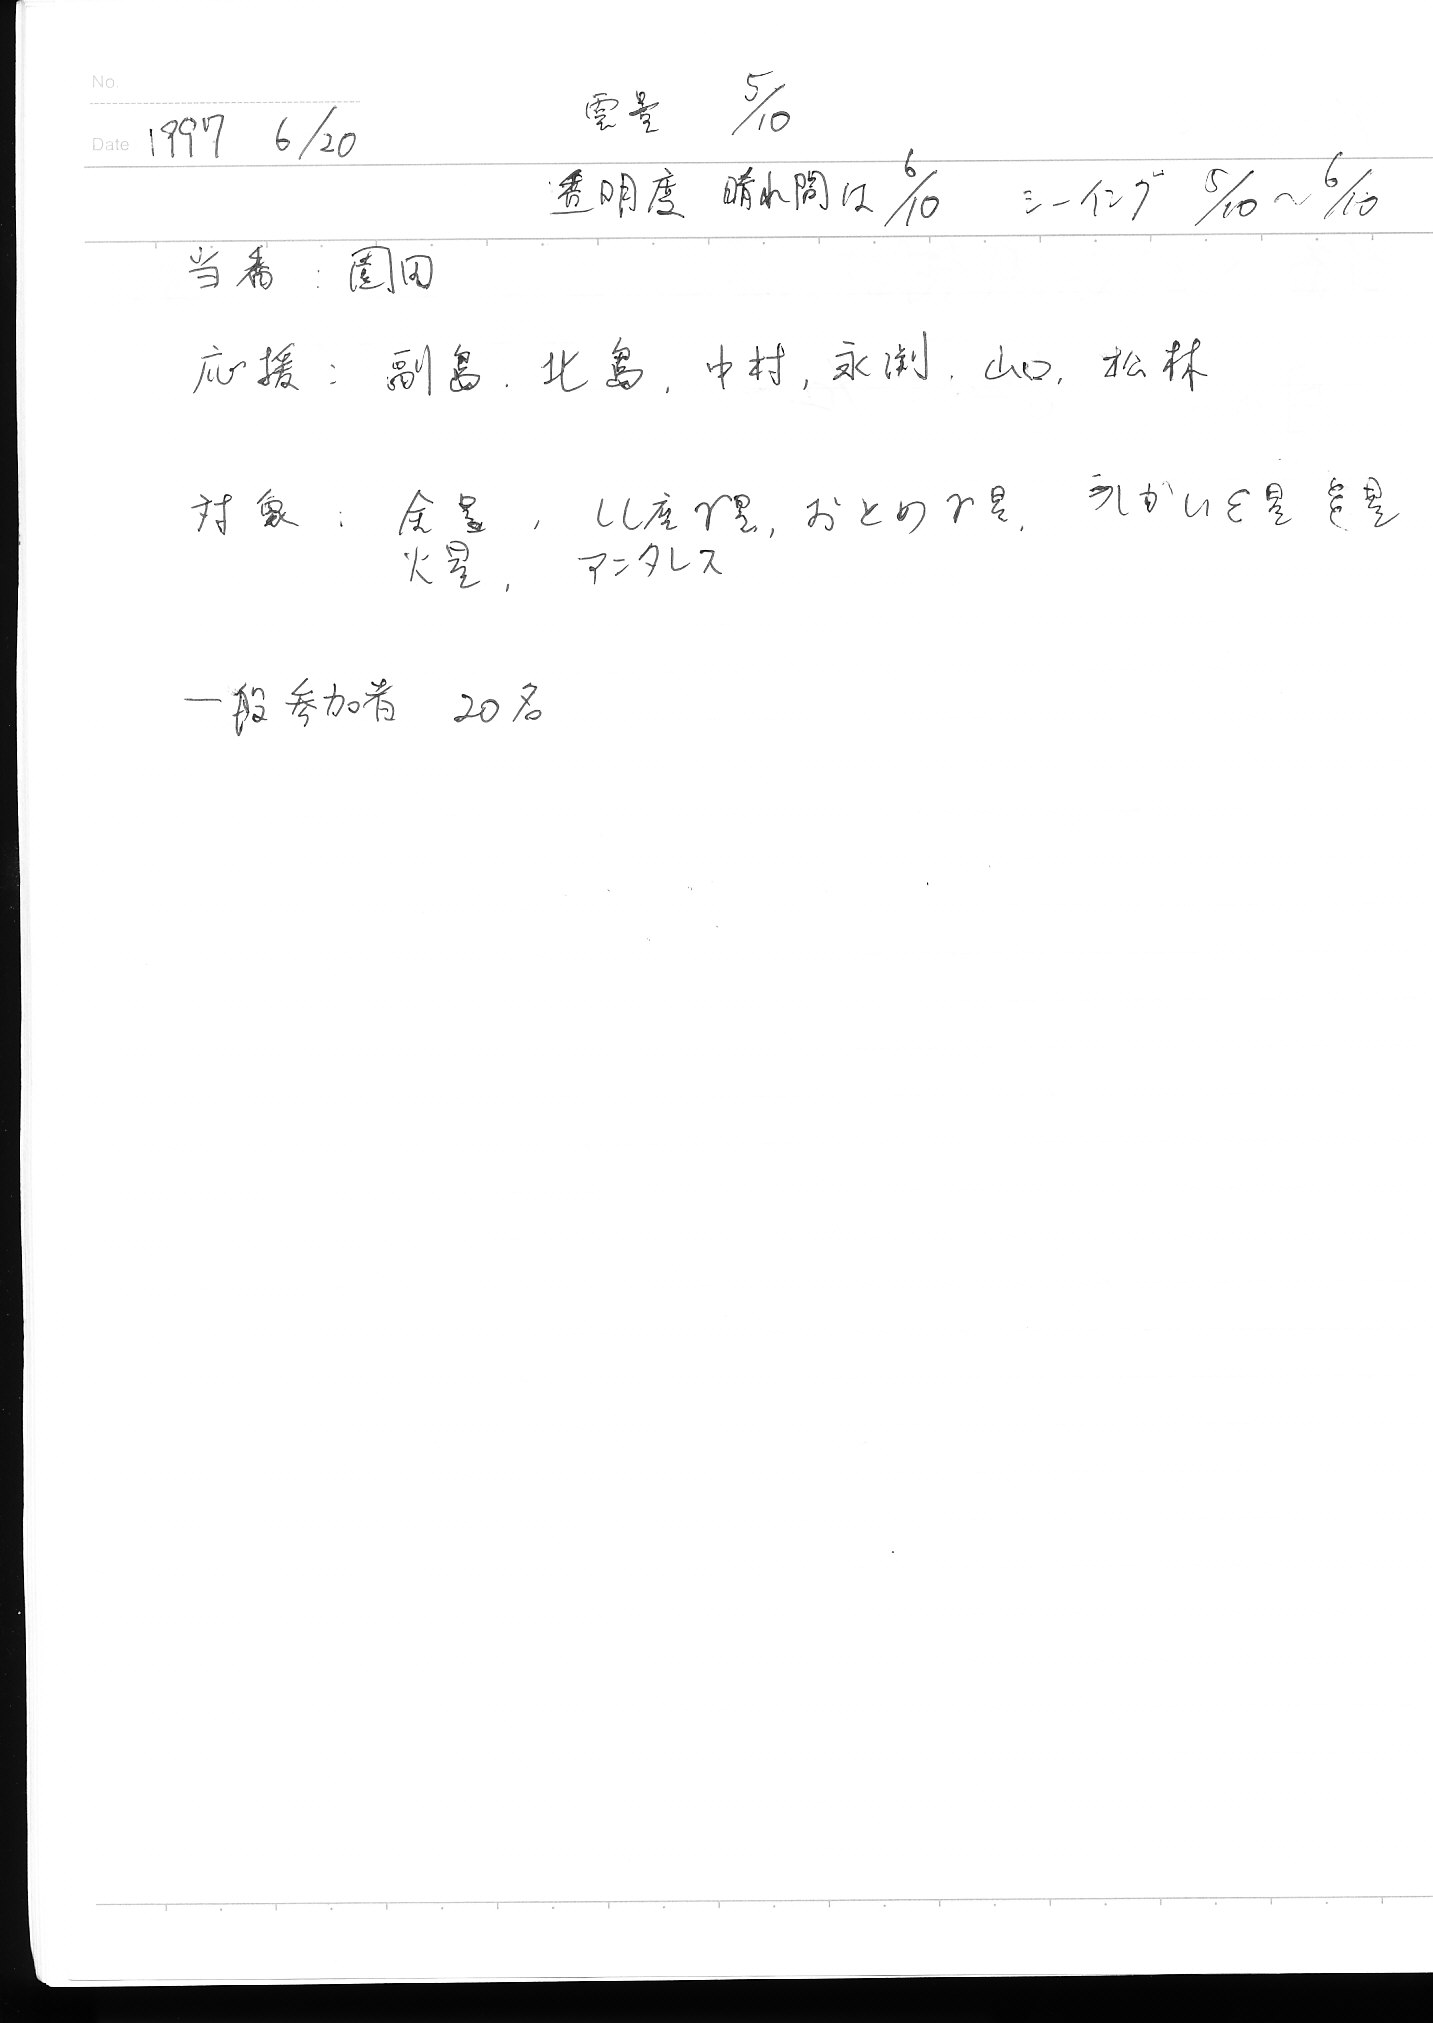 No.
雲量 5/10
Date 1997 6/20
透明度 晴れ間は 6/10 シーイング 5/10〜6/10
当番：園田
応援：副島．北島，中村，永渕．山口，松林
対象：金星，しし座γ星，おとめγ星，うしかいε星 ξ星
火星，アンタレス
一般参加者 20名